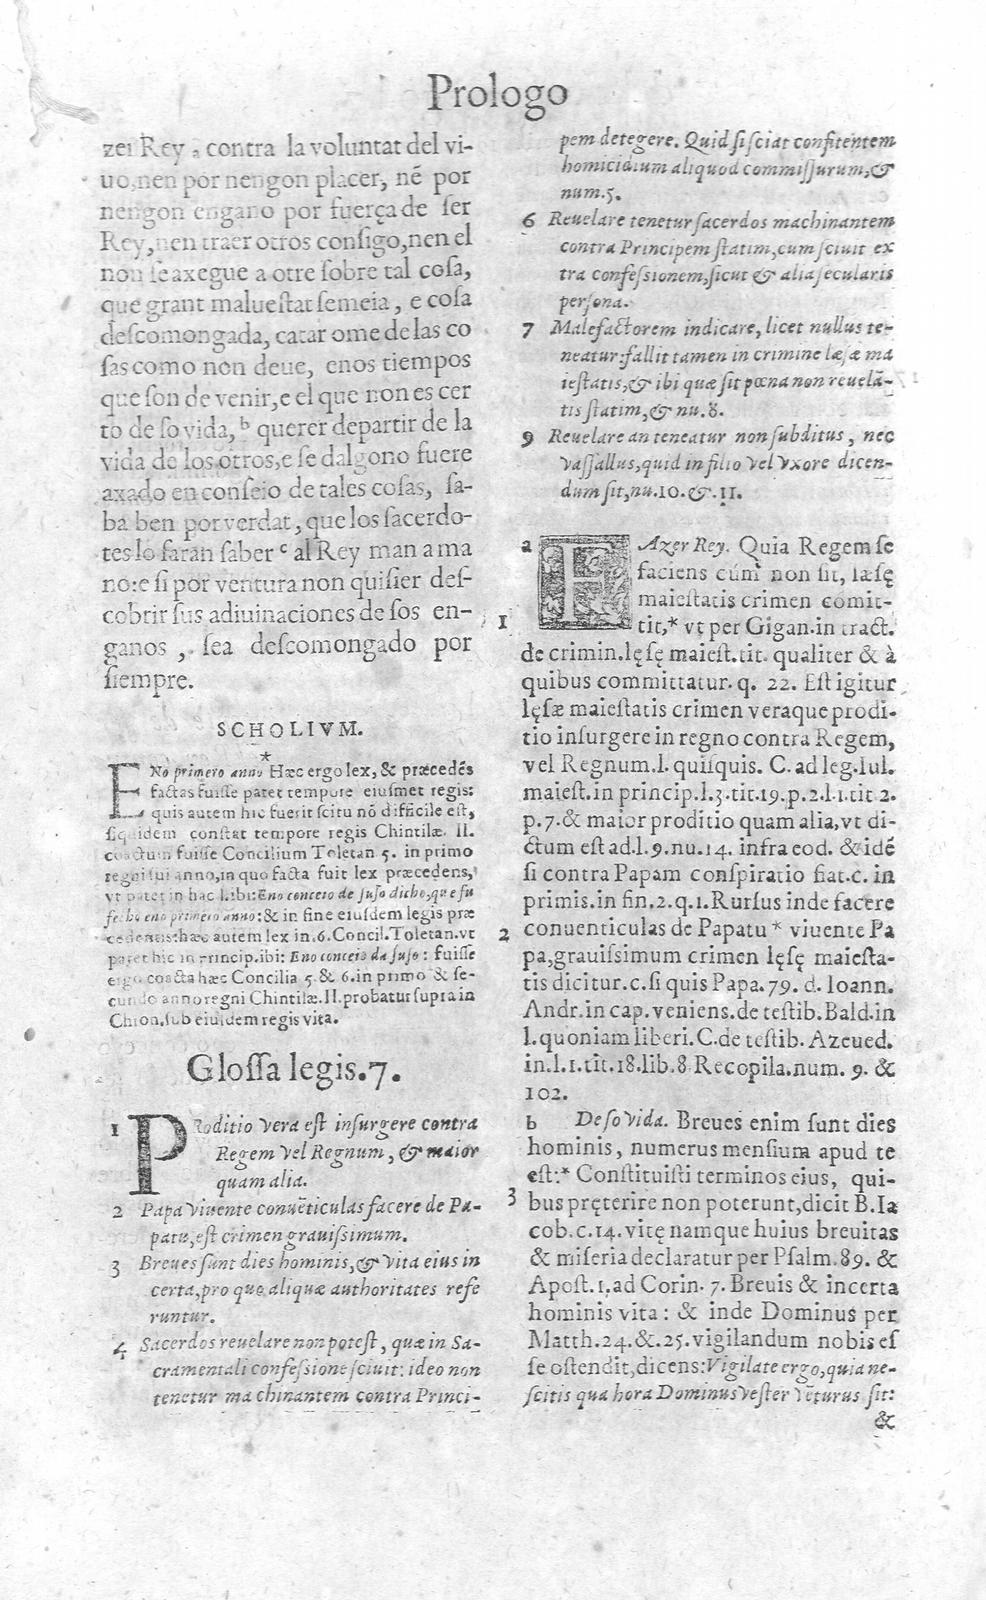 Prologo
zer Rey, contra la voluntat del vi-
uo, nen por nengon placer, nẽ por
nengon engano por fuerça de ser
Rey, nen traer otros consigo, nen el
non se axegue a otre sobre tal cosa,
que grant maluestat semeia, e cosa
descomongada, catar ome de las co
sas como non deue, enos tiempos
que son de venir, e el que non es cer
to de so vida, ᵇ querer departir de la
vida de los otros, e se dalgono fuere
axado en conseio de tales cosas, sa-
ba ben por verdat, que los sacerdo-
tes lo faran saber ᶜ al Rey man a ma
no: e si por ventura non quisier des-
cobrir sus adiuinaciones de sos en-
ganos, sea descomongado por
siempre.
SCHOLIVM.
*
ENo primero anno Hæc ergo lex, & præcedẽs
factas fuisse patet tempore eiusmet regis:
quis autem hic fuerit scitu nõ difficile est,
siquidem constat tempore regis Chintilæ. II.
coactum fuisse Concilium Toletan. 5. in primo
regni sui anno, in quo facta fuit lex præcedens,
vt patet in hac l. ibi: Eno conceto de suso dicho, que fu
fecho eno primero anno: & in fine eiusdem legis præ
cedentis: hæc autem lex in. 6. Concil. Toletan. vt
patet hic in princip. ibi: Eno conceto da suso: fuisse
ergo coacta hæc Concilia 5. & 6. in primo & se-
cundo anno regni Chintilæ. II. probatur supra in
Chron. sub eiusdem regis vita.
Glossa legis. 7.
1 PRoditio vera est insurgere contra
Regem vel Regnum, & maior
quam alia.
2 Papa viuente conuẽticulas facere de Pa-
patu, est crimen grauissimum.
3 Breues sunt dies hominis, & vita eius in
certa, pro quo aliquæ authoritates refe
runtur.
4 Sacerdos reuelare non potest, quæ in Sa-
cramentali confessione sciuit: ideo non
tenetur machinantem contra Princi-
pem detegere. Quid si sciat confitentem
homicidium aliquod commissurum, &
num. 5.
6 Reuelare tenetur sacerdos machinantem
contra Principem statim, cum sciuit ex
tra confessionem, sicut & alia secularis
persona.
7 Malefactorem indicare, licet nullus te-
neatur: fallit tamen in crimine læsæ ma
iestatis, & ibi quæ sit pœna non reuelã-
tis statim, & nu. 8.
9 Reuelare an teneatur non subditus, nec
vassallus, quid in filio vel vxore dicen-
dum sit, nu. 10. &. 11.
a FAzer Rey. Quia Regem se
faciens cúm non sit, læsę
maiestatis crimen comit-
1 tit, * vt per Gigan. in tract.
de crimin. lęsę maiest. tit. qualiter & à
quibus committatur. q. 22. Est igitur
lęsæ maiestatis crimen veraque prodi-
tio insurgere in regno contra Regem,
vel Regnum. l. quisquis. C. ad leg. Iul.
maiest. in princip. l. 3. tit. 19. p. 2. l. 1. tit 2.
p. 7. & maior proditio quam alia, vt di-
ctum est ad. l. 9. nu. 14. infra eod. & idẽ
si contra Papam conspiratio fiat. c. in
primis. in fin. 2. q. 1. Rursus inde facere
2 conuenticulas de Papatu * viuente Pa
pa, grauissimum crimen lęsę maiesta-
tis dicitur. c. si quis Papa. 79. d. Ioann.
Andr. in cap. veniens. de testib. Bald. in
l. quoniam liberi. C. de testib. Azeued.
in. l. 1. tit. 18. lib. 8. Recopila. num. 9. &
102.
b De so vida. Breues enim sunt dies
hominis, numerus mensium apud te
est: * Constituisti terminos eius, qui-
3 bus pręterire non poterunt, dicit B. Ia
cob. c. 14. vitę namque huius breuitas
& miseria declaratur per Psalm. 89. &
Apost. 1. ad Corin. 7. Breuis & incerta
hominis vita: & inde Dominus per
Matth. 24. &. 25. vigilandum nobis es
se ostendit, dicens: Vigilate ergo, quia ne-
scitis qua hora Dominus vester vẽturus sit:
&